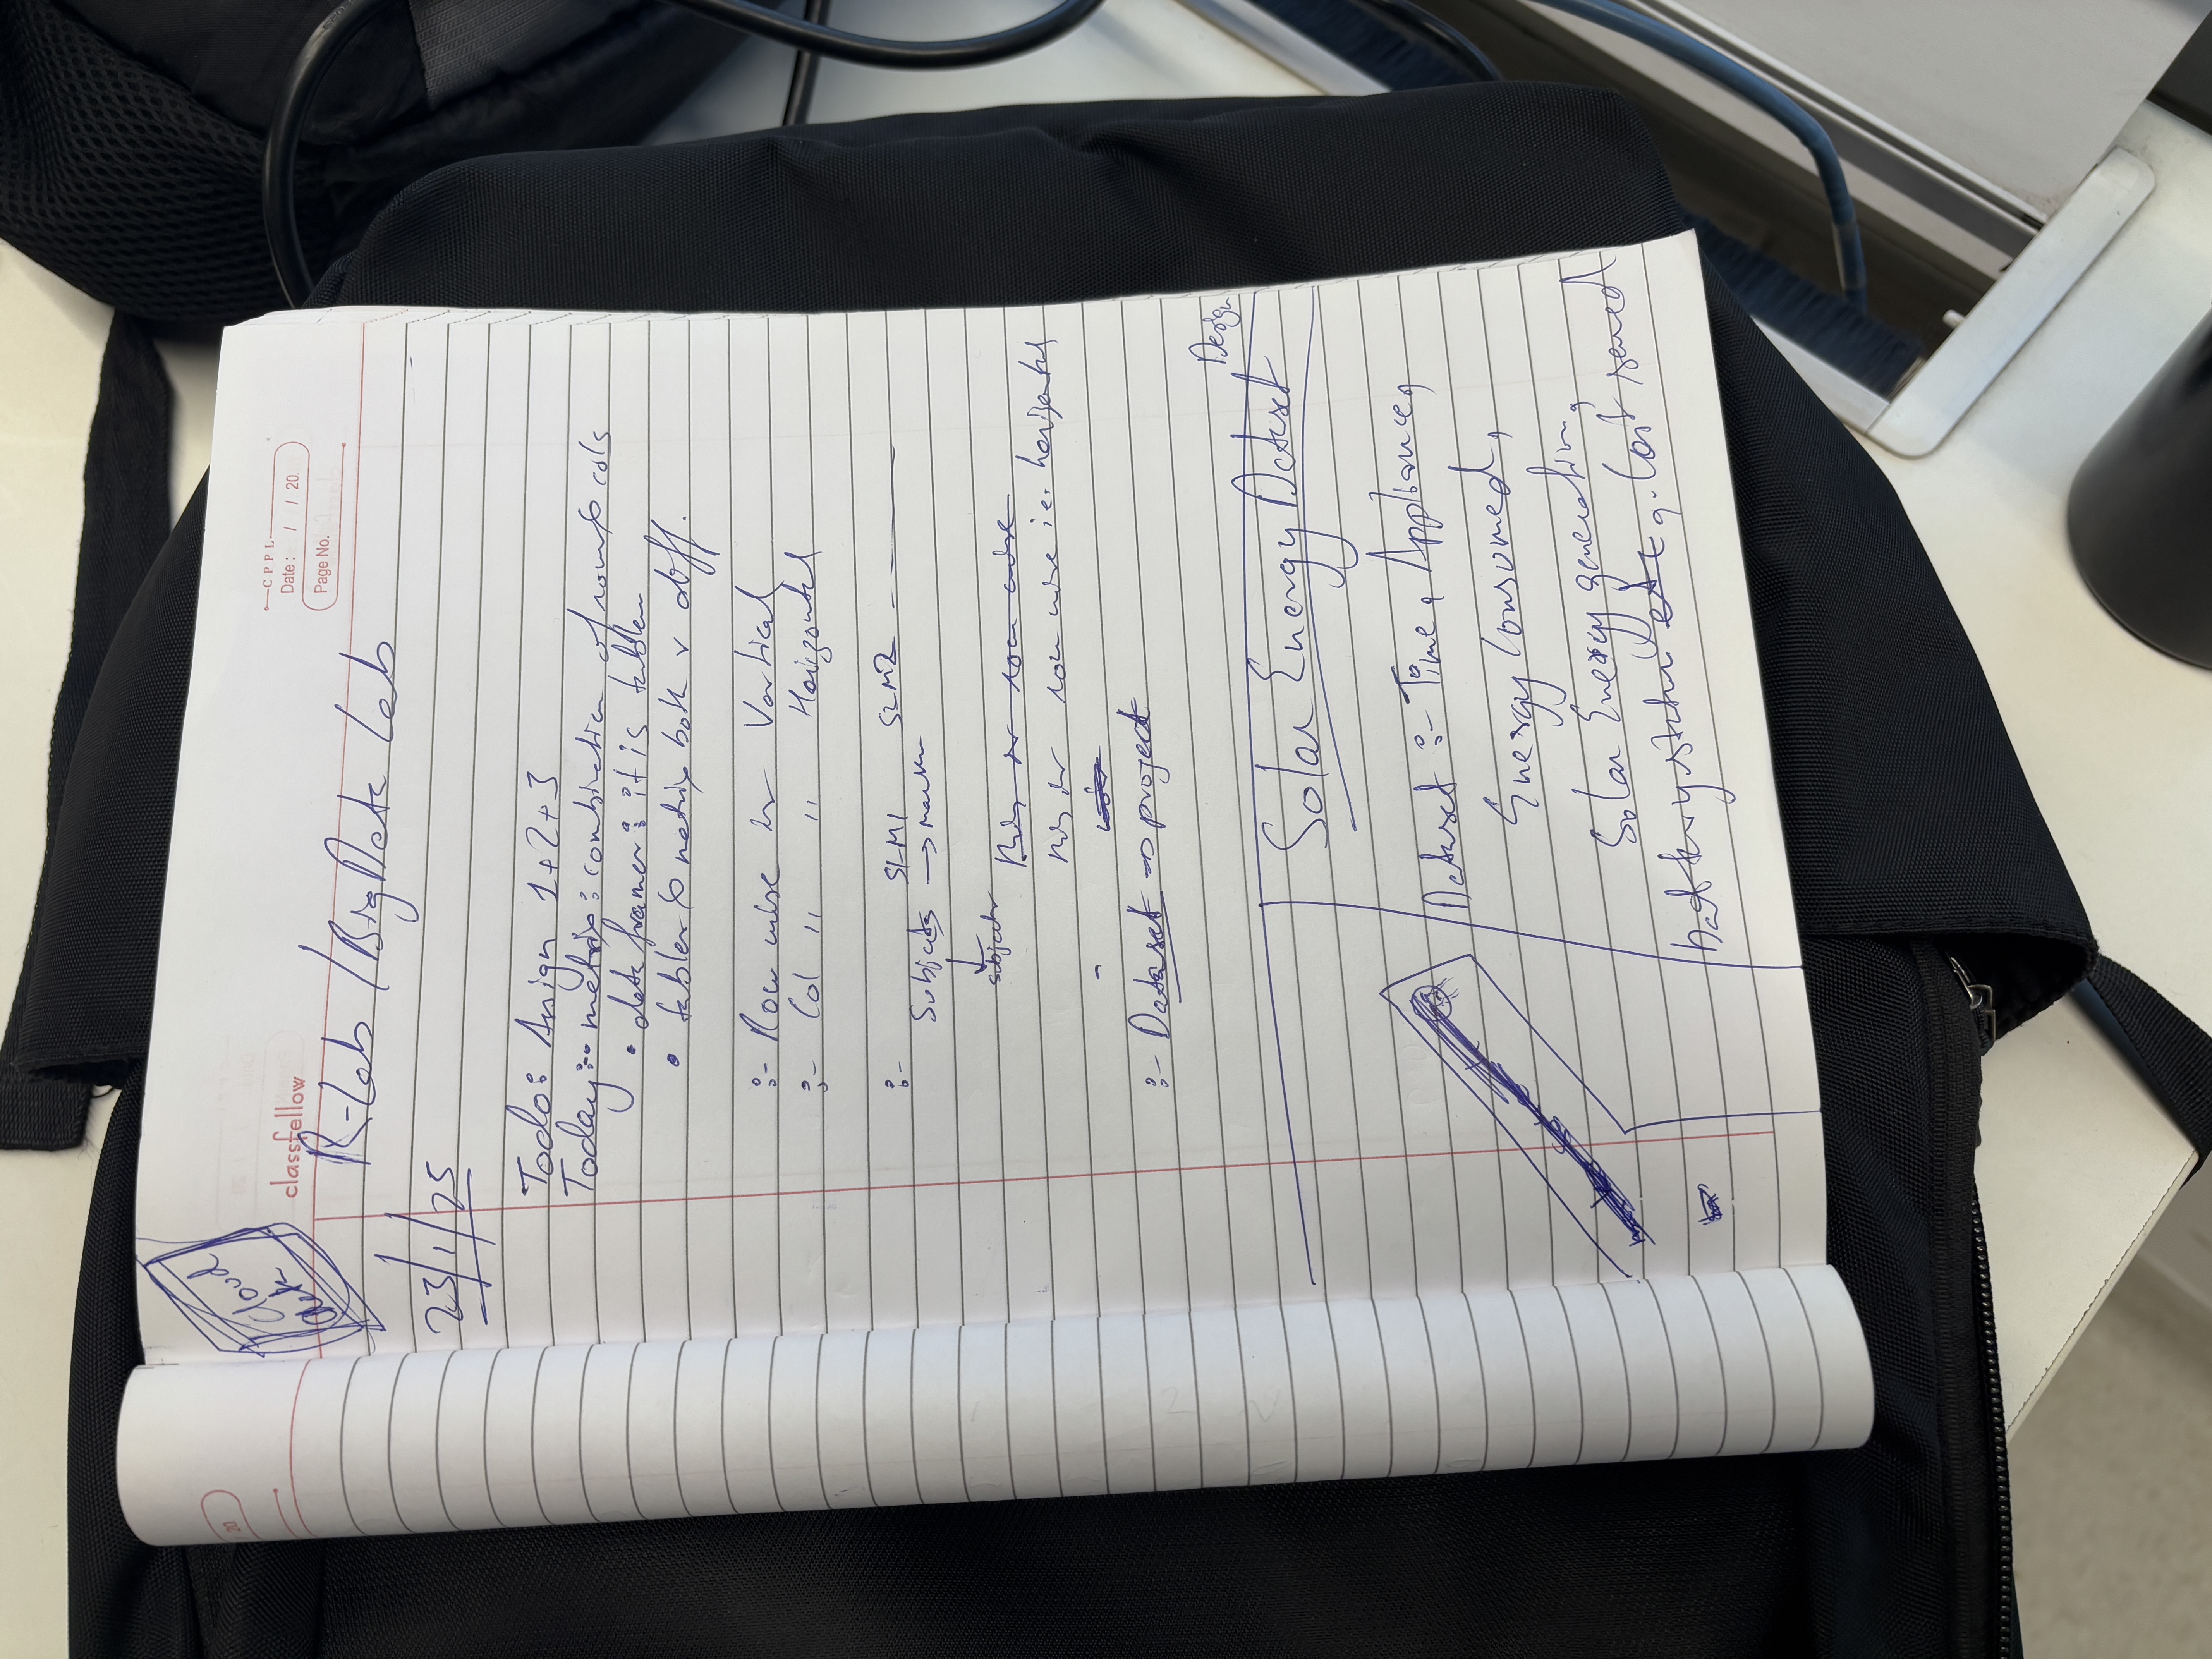 20
cloud
data
classfellow
CPPL
Date : / / 20
Page No.
R-Lab / Big Data Lab
23/1/25
Todo: Assign 1+2+3
Today:- matrix: combination of rows & cols
• data frames: it is tables
• tables & matrix both r diff.
:- Row wise is Vertical
:- Col " " Horizontal
:- SLM1 SLM2
Subjects → marks
subjects
row wise
row wise i.e. horizontal
:- Dataset => project
Design
Solar Energy Dataset
Dataset :- Time, Appliance,
Energy Consumed,
Solar Energy generation,
battery status etc, Cost saved